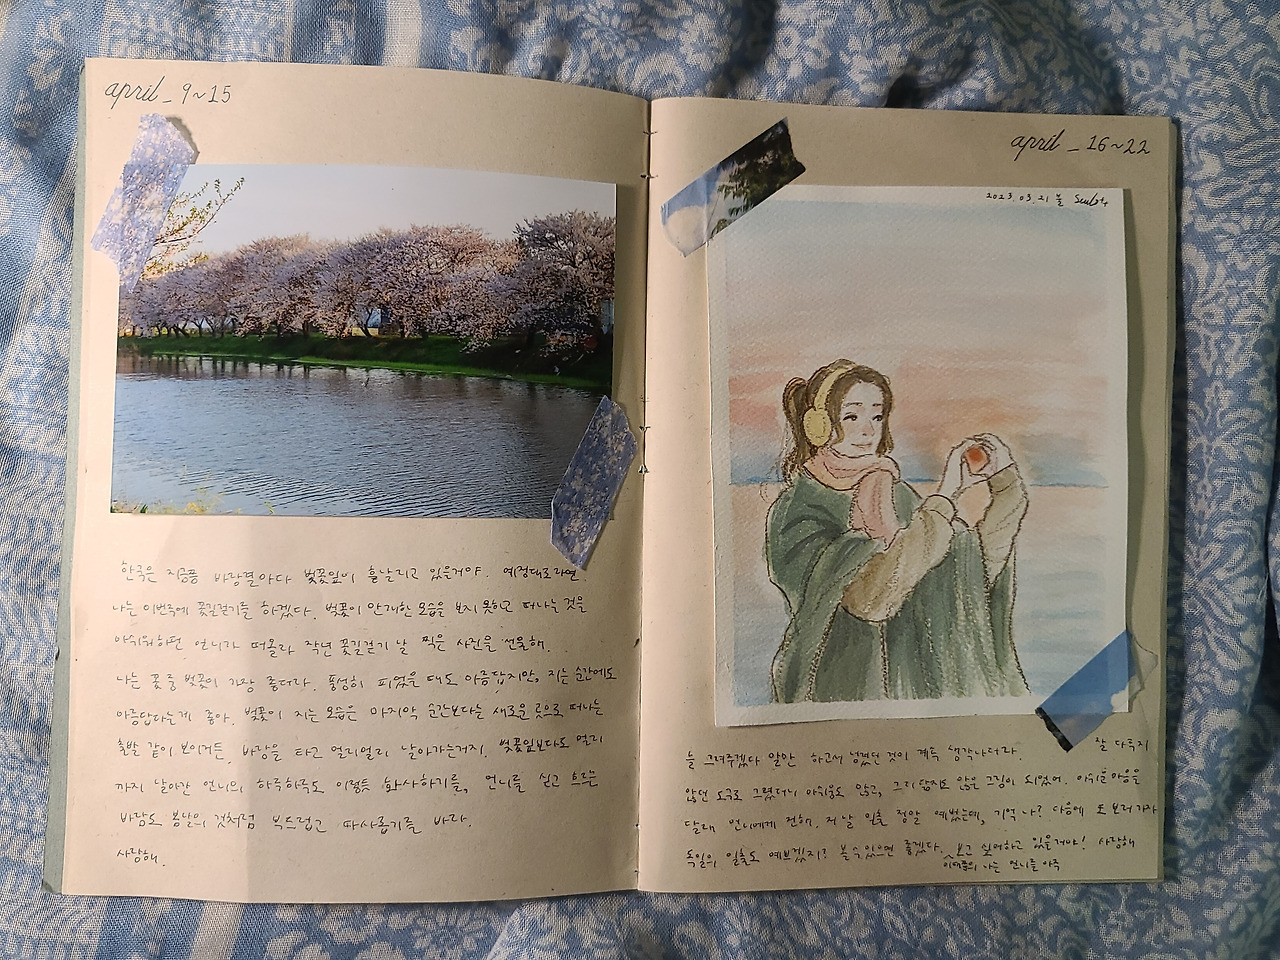 april _ 9~15
한국은 지금쯤 바람결마다 벚꽃잎이 흩날리고 있을거야. 예정대로라면,
나는 이번주에 꽃길걷기를 하겠다. 벚꽃이 만개한 모습을 보지 못하고 떠나는 것을
아쉬워하던 언니가 떠올라 작년 꽃길걷기 날 찍은 사진을 선물해.
나는 꽃 중 벚꽃이 가장 좋더라. 풍성히 피었을 때도 아름답지만, 지는 순간에도
아름답다는게 좋아. 벚꽃이 지는 모습은 마지막 순간보다는 새로운 곳으로 떠나는
출발 같이 보이거든. 바람을 타고 멀리멀리 날아가는거지. 벚꽃잎보다도 멀리
까지 날아간 언니의 하루하루도 이렇듯 화사하기를, 언니를 싣고 흐르는
바람도 봄날의 것처럼 부드럽고 따사롭기를 바라.
사랑해.
april _ 16~22
2023. 03. 21
늘 그려주겠다 말만 하고서 넘겼던 것이 계속 생각나더라. 잘 다루지
않던 도구로 그렸더니 아쉬움도 많고, 그리 닮지도 않은 그림이 되었어. 아쉬운 마음을
달래 언니에게 전해. 저 날 일출 정말 예뻤는데, 기억 나? 다음에 또 보러 가자
독일의 일출도 예쁘겠지? 볼 수 있으면 좋겠다. 보고 싶어하고 있을거야! 사랑해
나는 언니를 아주